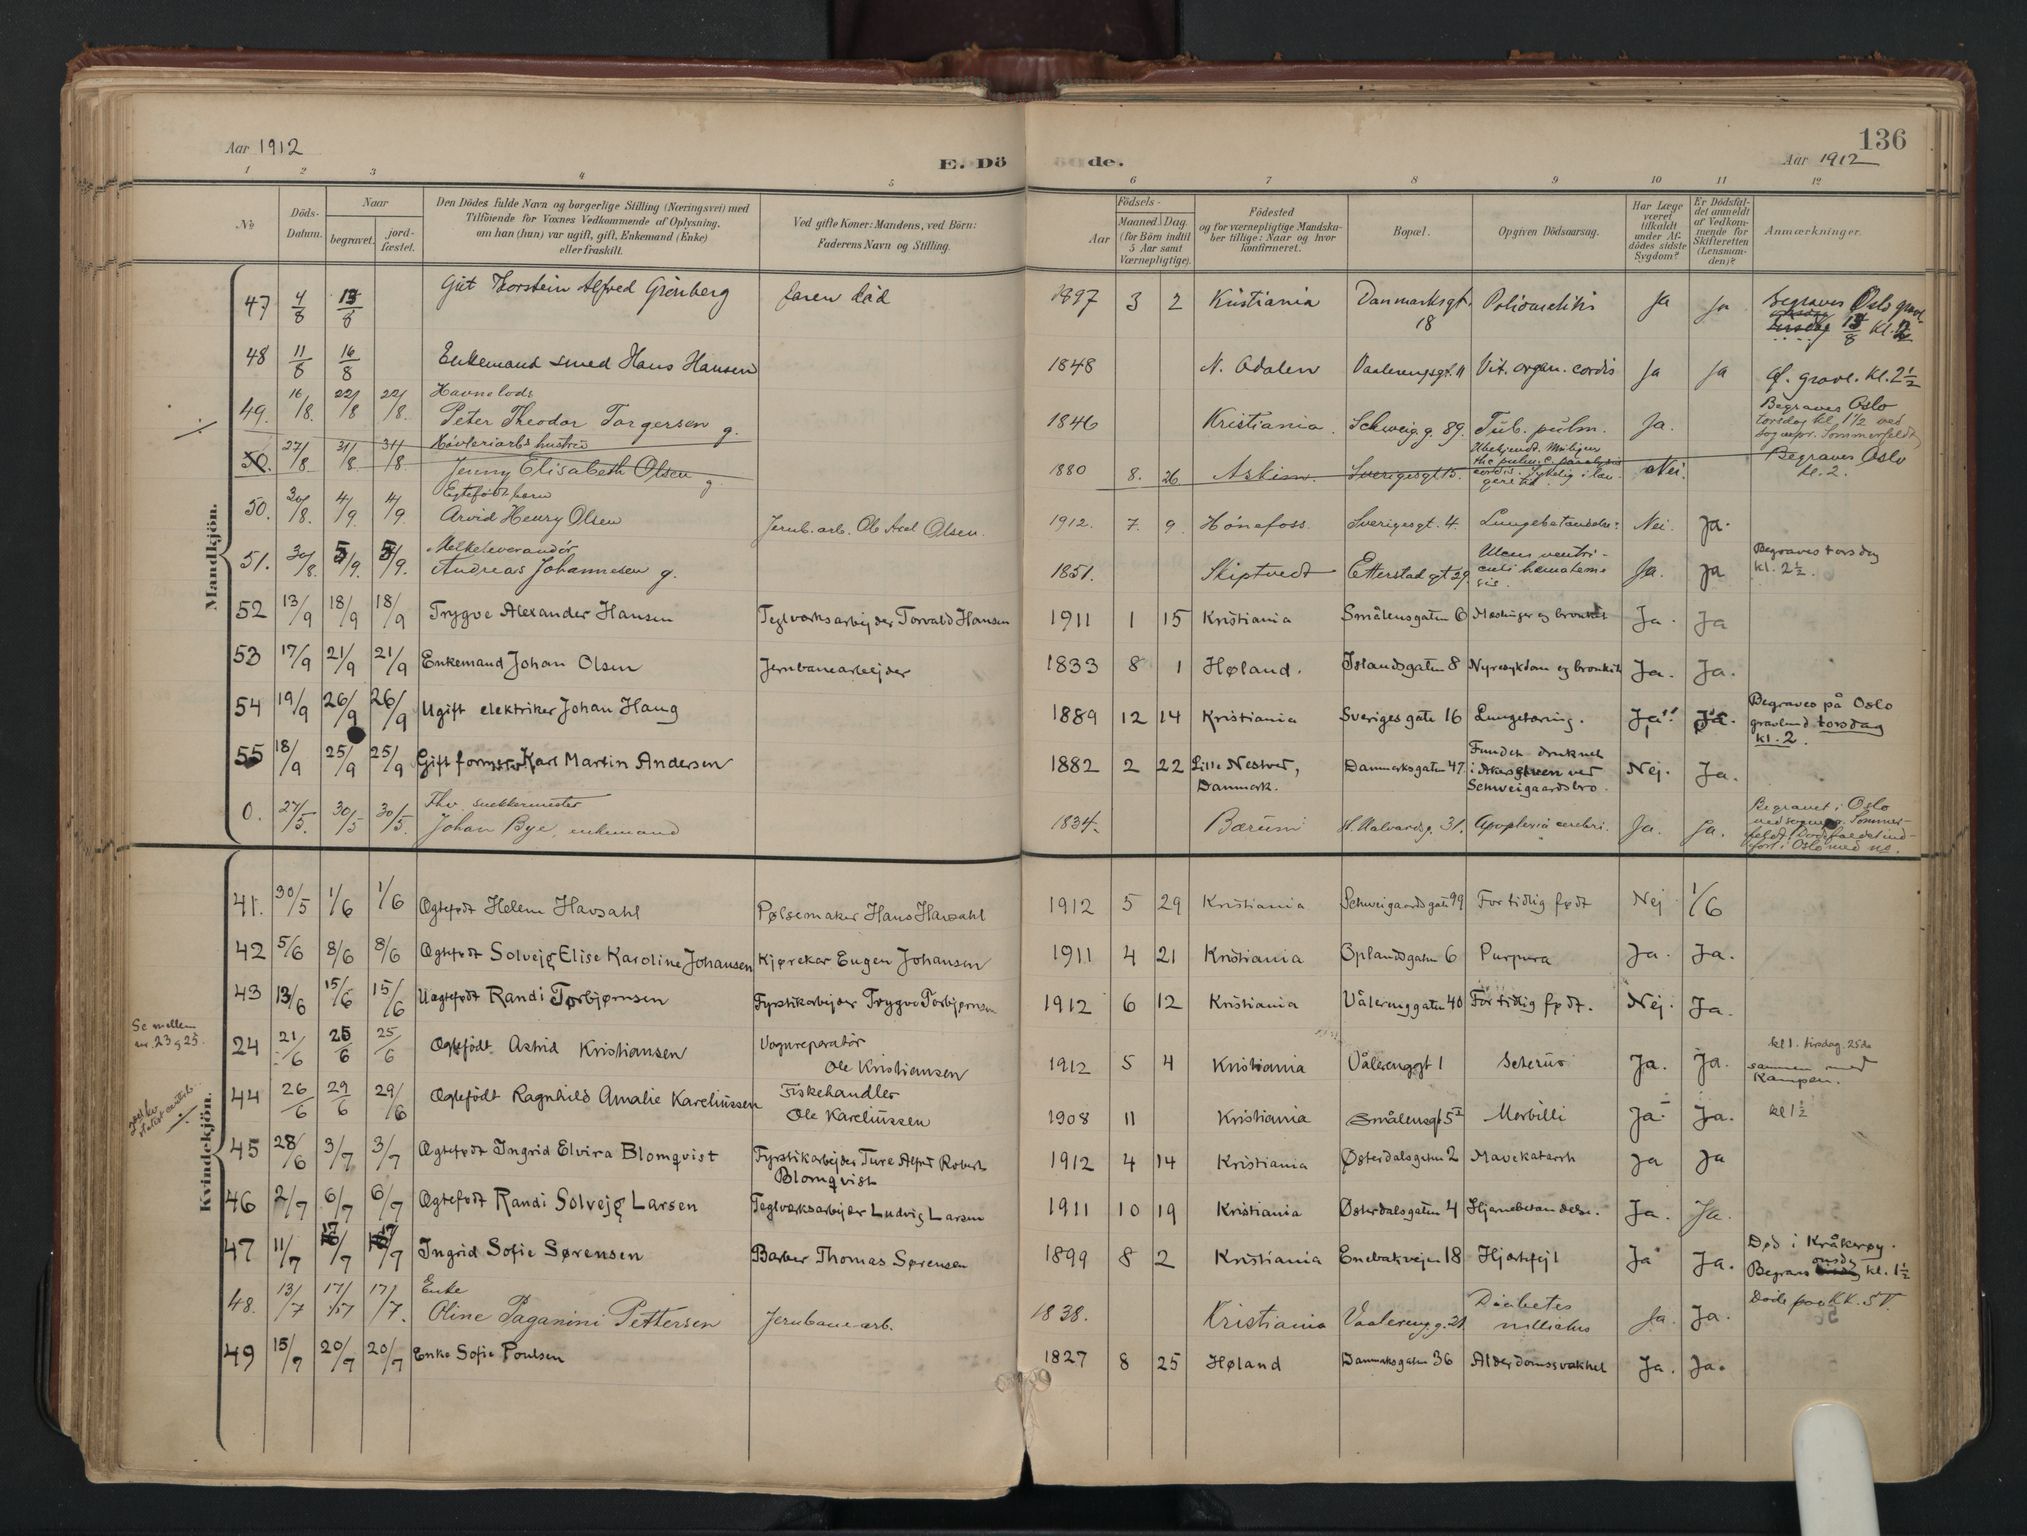 136
Aar 1912
E. Dö de.
Aar 1912
1 2 3 4 5 6 7 8 9 10 11 12
№
Döds-Datum.
Naar
begravet.
jord-fæstet.
Den Dödes fulde Navn og borgerlige Stilling (Næringsvei) med
Tilföiende for Voxnes Vedkommende af Oplysning,
om han (hun) var ugift, gift, Enkemand (Enke)
eller fraskilt.
Ved gifte Koner: Mandens, ved Börn:
Faderens Navn og Stilling.
Aar
Födsels-
Maaned. Dag.
(for Börn indtil
5 Aar samt
Værnepligtige).
Födested
og for værnepligtige Mandska-
ber tillige: Naar og hvor
konfirmeret.
Bopæl.
Opgiven Dödsaarsag.
Har Læge
været
tilkaldt
under Af-
dödes sidste
Sygdom?
Er Dödsfal-
det anmeldt
af Vedkom-
mende for
Skifteretten
(Lensman-
den)?
Anmærkninger.
Mandkjön.
47 4/8 13/8 Gut Thorstein Alfred Grönberg faren död 1897 3 2 Kristiania Danmarksgt. 18 Ja Ja Begraves Oslo
13/8 kl.
48 11/8 16/8 Enkemand smed Hans Hansen 1848 N. Odalen Vaalerengsgt. 11 Vit. organ. cordis Ja Ja Gl. gravl. kl. 2½
49. 16/8. 22/8 22/8. Havnelods
Peter Theodor Torgersen g. 1846 Kristiania. Schweigg. 89. Tub. pulm. Ja. Begraves Oslo
torsdag kl. 1½ ved
sognepr. Sommerfeldt
50. 27/8. 31/8. 31/8. Høvleriarb. hustru
Jenny Elisabeth Olsen g. 1880 8. 26. Askim. Sverigesgt. 15. Nei. Begraves Oslo
kl. 2.
50. 30/8. 4/9. 4/9. Egtefødt barn
Arvid Henry Olsen Jernb. arb. Ole Axel Olsen. 1912. 7. 9. Hönefoss. Sverigesgt. 4. Lungebetændelse. Nei. Ja.
51. 30/8. 5/9. 5/9. Melkeleverandør
Andreas Johannesen g. 1851. Skiptvedt Etterstadgt 29. Ulcus ventri-
culi hæmateme-
sis Ja. Ja Begraves torsdag
kl. 2½.
52 13/9 18/9 18/9 Trygve Alexander Hansen Teglverksarbejder Torvald Hansen 1911 1 15 Kristiania Smålensgaten 6 Mæslinger og bronkit Ja. Ja
53 17/9 21/9 21/9 Enkemand Johan Olsen Jernbanearbejder 1833 8 1 Høland. Islandsgaten 8 Nyresykdom og bronkit Ja. Ja.
54 19/9 26/9 26/9 Ugift elektriker Johan Haug 1889 12 14 Kristiania Sverigesgate 16 Lungetæring. Ja Ja. Begraves på Oslo
gravlund torsdag
kl. 2.
55 18/9 25/9 25/9 Gift formster Karl Martin Andersen 1882 2 22 Lille Nestved,
Danmark. Danmarksgaten 47. Funden druknet
i Akerselven ved
Schweigaardsbro. Nej. Ja.
0. 27/5. 30/5 30/5. Fhv. snekkermester
Johan Bye, enkemand 1834. Bærum H. Halvardsg. 31. Apoplexia cerebri. Ja. Ja. Begravet i Oslo
ved sognepr. Sommer-
feldt. Dödsfaldet ind-
fört i Oslo med no.
Kvindekjön.
41. 30/5 1/6 1/6 Ogtefødt Helene Havsahl Pølsemaker Hans Havsahl 1912 5 29 Kristiania Schweigaardsgate 99 For tidlig født Nej 1/6
42 5/6 8/6 8/6 Ogtefødt Solvejg Elise Karoline Johansen Kjørekar Eugen Johansen 1911 4 21 Kristiania Oplandsgaten 6 Purpura Ja. Ja.
43 13/6 15/6 15/6 Uægtefødt Randi Torbjørnsen Fyrstikarbejder Trygve Torbjørnsen 1912 6 12 Kristiania Vålerenggaten 40 For tidlig født. Nej. Ja.
Se mellem
nr. 23 og 25.
24 21/6 25/6 25/6 Ogtefödt Astrid Kristiansen Vognreparatör
Ole Kristiansen 1912 5 4 Kristiania Vålerenggt 1 Ja. Ja. kl 1. tirsdag. 25de
sammen med
Kampen.
44 26/6 29/6 29/6 Ogtefödt Ragnhild Amalie Kareliussen Fiskehandler
Ole Kareliussen 1908 11 Kristiania Smålensgt 5 Morbilli Ja. Ja. kl 1½
45 28/6 3/7 3/7 Ogtefødt Ingrid Elvira Blomqvist Fyrstikarbejder Ture Alfred Robert
Blomqvist 1912 4 14 Kristiania Østerdalsgaten 2 Mavekatarrh Ja Ja
46 2/7 6/7 6/7 Ogtefødt Randi Solvejg Larsen Teglverksarbejder Ludvig Larsen 1911 10 19 Kristiania Østerdalsgaten 4 Hjernebetændelse. Ja. Ja.
47 11/7 17/7 17/7 Ingrid Sofie Sørensen Barber Thomas Sørensen 1899 8 2 Kristiania Enebakvejen 18 Hjertefejl Ja Ja. Død i Kråkerøy.
Begraves onsdag kl. 1½
48. 13/7 17/7 17/7. Enke
Oline Paganini Pettersen Jernbanearb. 1838. Kristiania Vaalereng. g. 21 Diabetes
mellitus Ja. Ja. Døde paa KK. S V.
49 15/7 20/7 20/7 Enke Sofie Poulsen 1827 8 25 Høland Danmarksgaten 36 Alderdomssvakhet Ja. Ja.